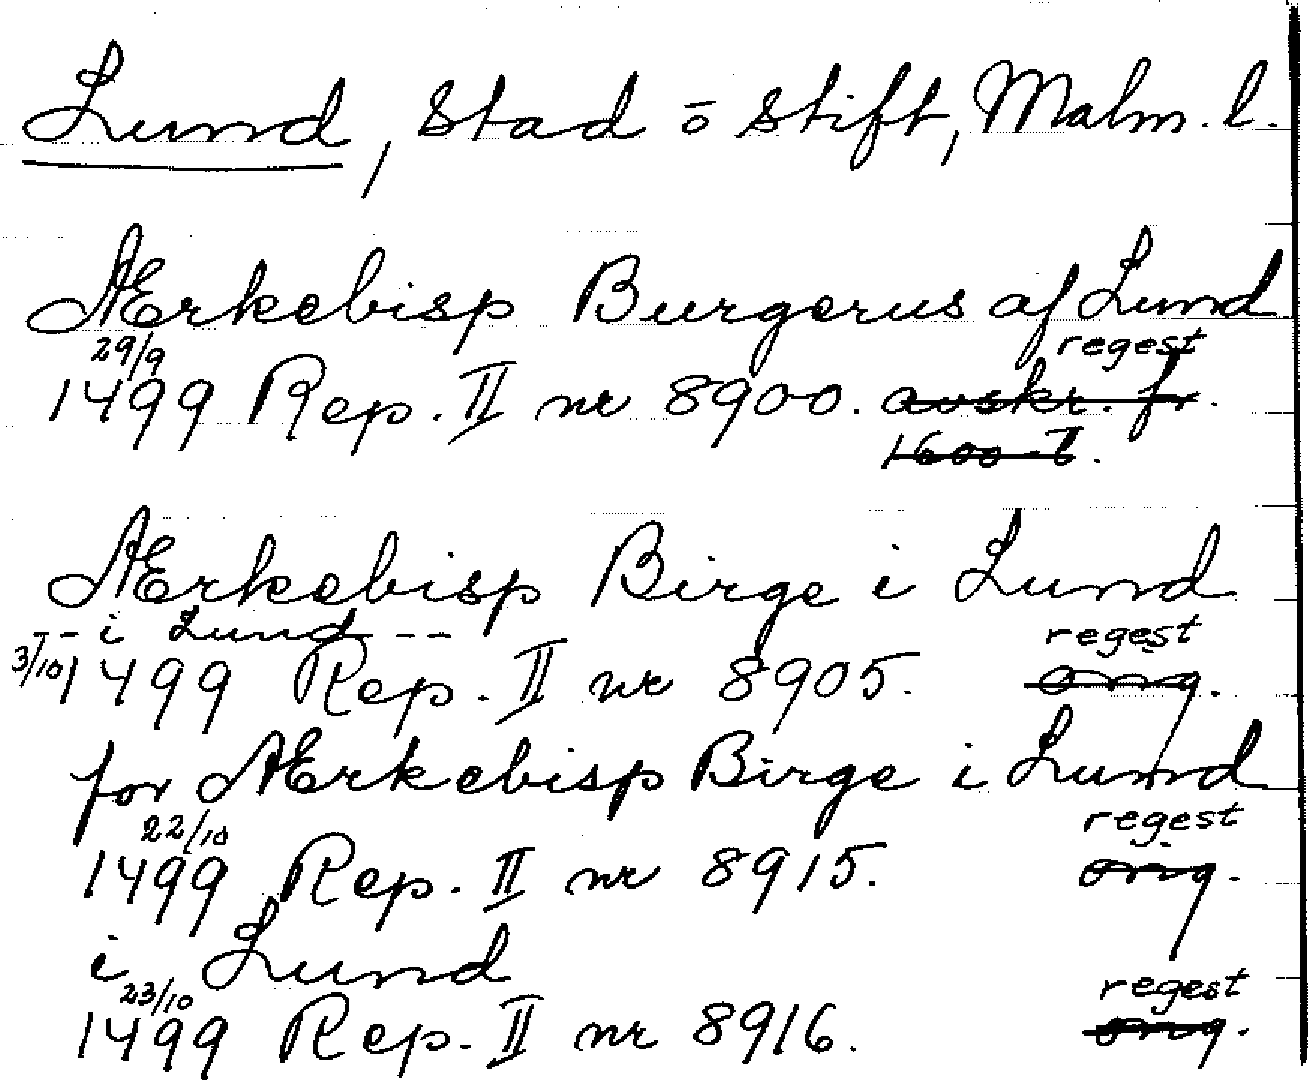 Lund, Stad o stift, Malm. l.
Ærkebisp Burgerus af Lund
29/9 regest
1499 Rep. II nr 8900. avskr. fr.
1600-t.
Ærkebisp Birge i Lund
-- i Lund -- regest
3/10 1499 Rep. II nr 8905. orig.
for Ærkebisp Birge i Lund
22/10 regest
1499 Rep. II nr 8915. orig.
i Lund
23/10 regest
1499 Rep. II nr 8916. orig.